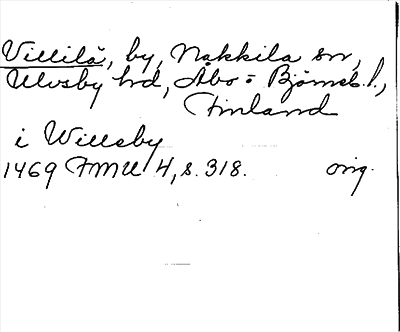 Villilä, by, Nakkila sn,
Ulvsby hd, Åbo= Björneb. l.,
Finland
i Willsby
1469 FMU 4, s. 318. orig.